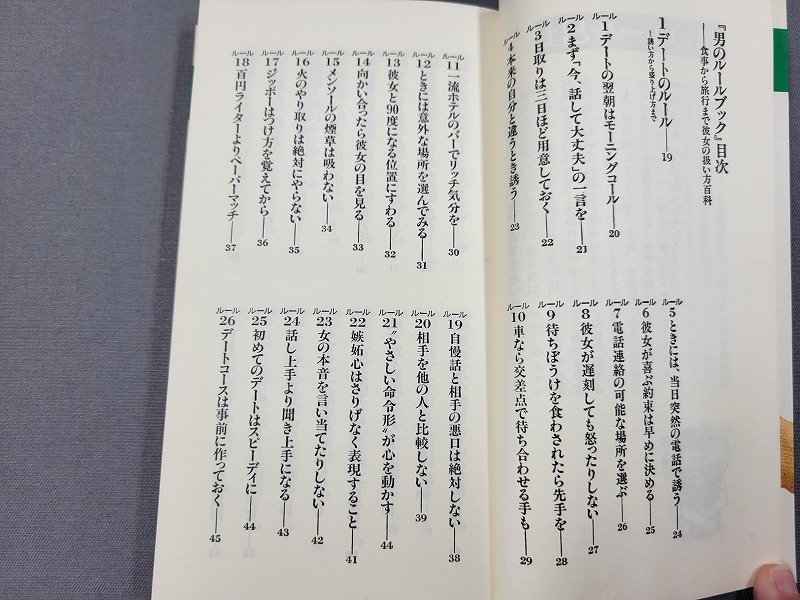 『男のルールブック』目次
――食事から旅行まで彼女の扱い方百科
1 デートのルール――19
―誘い方から盛り上げ方まで
ルール1 デートの翌朝はモーニングコール――20
ルール2 まず「今、話して大丈夫」の一言を――21
ルール3 日取りは三日ほど用意しておく――22
ルール4 本来の自分と違うとき誘う――23
ルール5 ときには、当日突然の電話で誘う――24
ルール6 彼女が喜ぶ約束は早めに決める――25
ルール7 電話連絡の可能な場所を選ぶ――26
ルール8 彼女が遅刻しても怒ったりしない――27
ルール9 待ちぼうけを食わされたら先手を――28
ルール10 車なら交差点で待ち合わせる手も――29
ルール11 一流ホテルのバーでリッチ気分を――30
ルール12 ときには意外な場所を選んでみる――31
ルール13 彼女と90度になる位置にすわる――32
ルール14 向かい合ったら彼女の目を見る――33
ルール15 メンソールの煙草は吸わない――34
ルール16 火のやり取りは絶対にやらない――35
ルール17 ジッポーはつけ方を覚えてから――36
ルール18 百円ライターよりペーパーマッチ――37
ルール19 自慢話と相手の悪口は絶対しない――38
ルール20 相手を他の人と比較しない――39
ルール21 〝やさしい命令形〟が心を動かす――44
ルール22 嫉妬心はさりげなく表現すること――41
ルール23 女の本音を言い当てたりしない――42
ルール24 話し上手より聞き上手になる――43
ルール25 初めてのデートはスピーディに――44
ルール26 デートコースは事前に作っておく――45